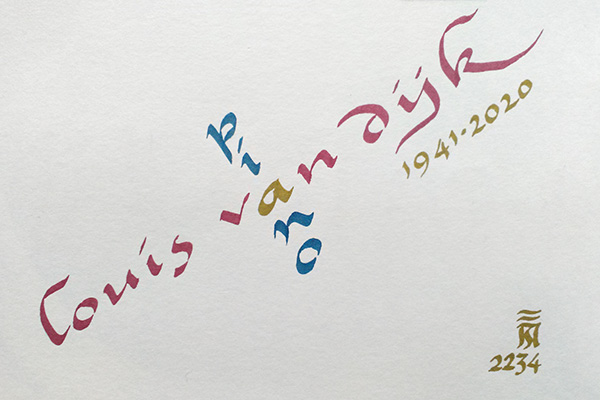 louis van dijk
piano
1941·2020
2234